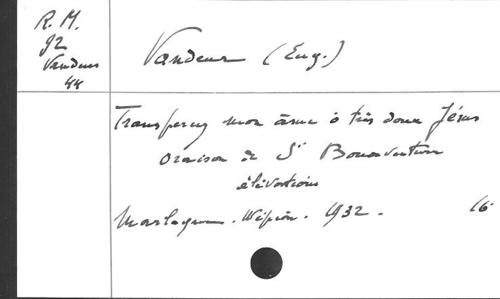 R. M.
J2
Vandeur
44
Vandeur (Eug.)
Transpercez mon âme ô très doux Jésus
Oraison de St Bonaventure
élévations
Marlagne. Wépion. 1932.
16